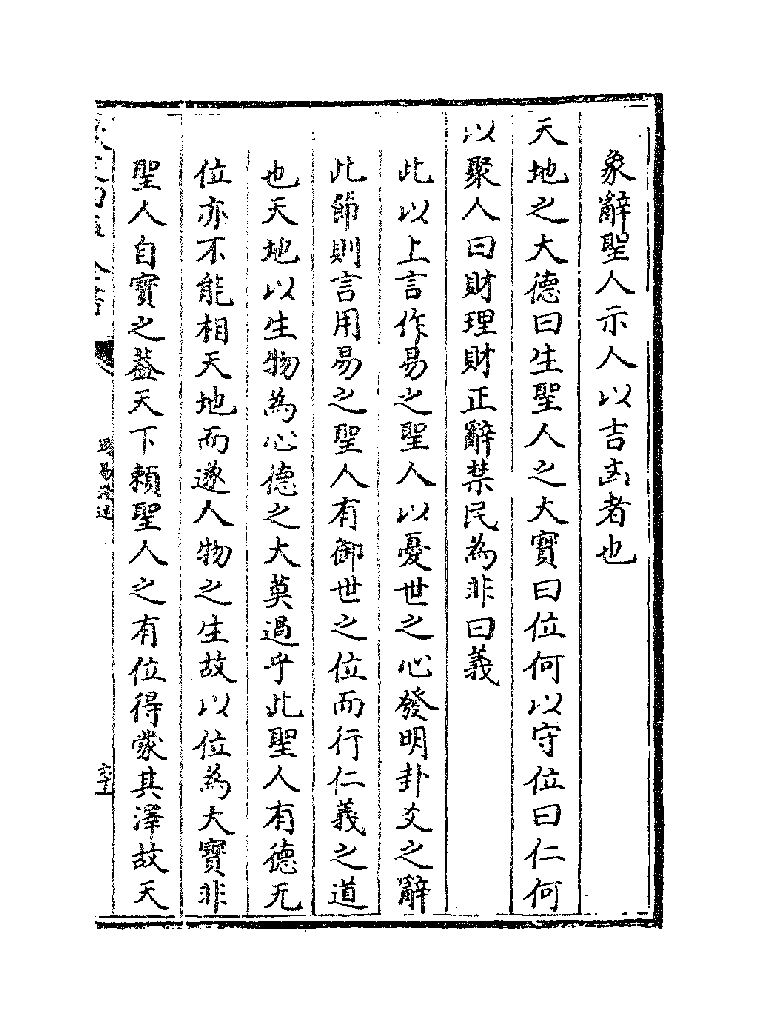 象辭聖人示人以吉凶者也
天地之大德曰生聖人之大寳曰位何以守位曰仁何
以聚人曰財理財正辭禁民為非曰義
此以上言作易之聖人以憂世之心發明卦爻之辭
此節則言用易之聖人有御世之位而行仁義之道
也天地以生物為心德之大莫過乎此聖人有德无
位亦不能相天地而遂人物之生故以位為大寳非
聖人自寳之葢天下頼聖人之有位得蒙其澤故天